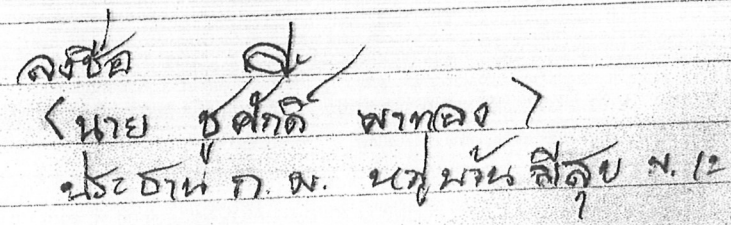 ลงชื่อ
(นาย ชูศักดิ์ พาทอง)
ประธาน ก.ม. หมู่บ้าน สีสุข ม. 12